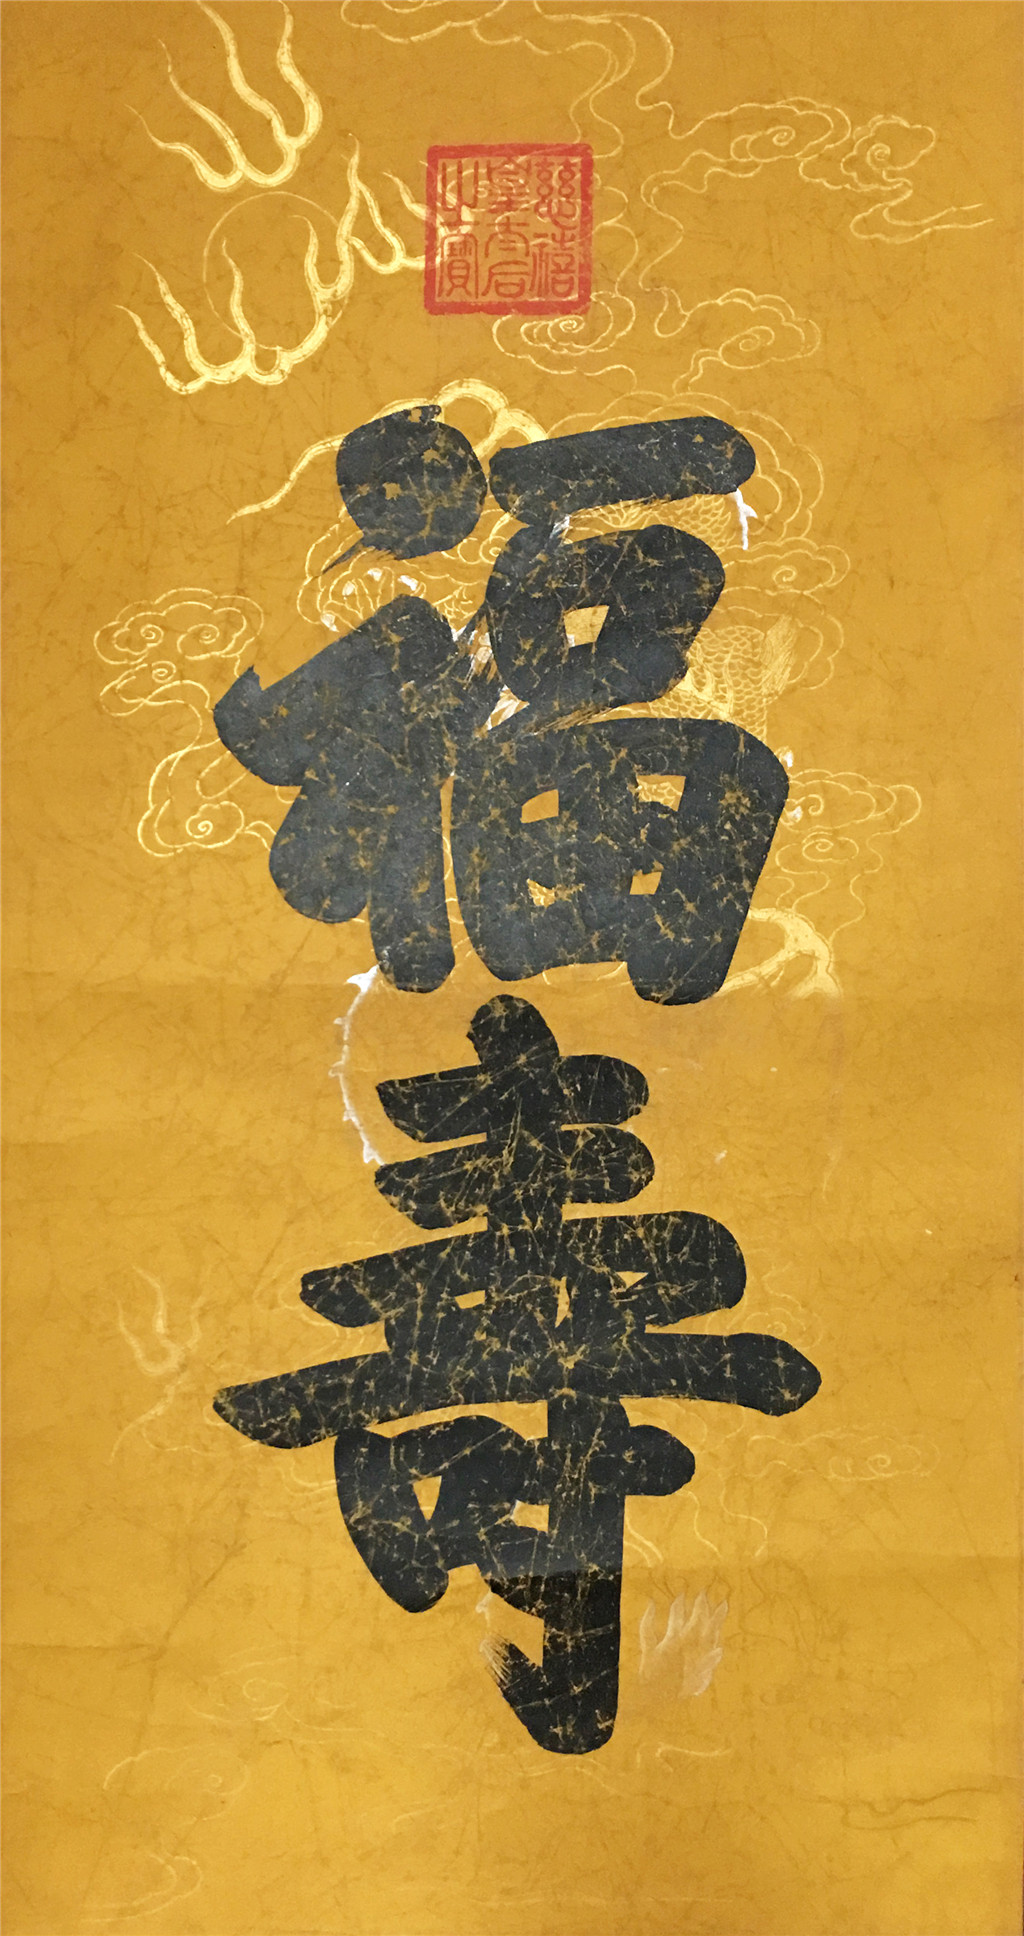 慈禧
皇太后
之寶
福
壽